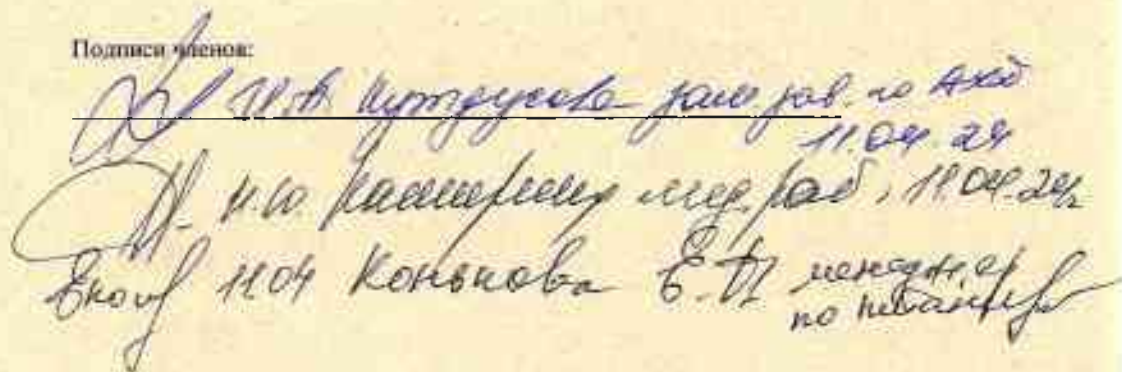 Подписи членов:
И.А. Кутдусова зам. зав. по АХД
11.04.24
И.Ю. мед. раб., 11.04.24г
11.04 Конькова Е.П. менеджер
по питанию